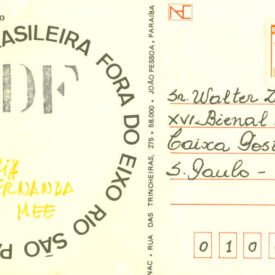 RASILEIRA FORA DO EIXO RIO SÃO PA
DF
FERNANDA
MEE
NAC • RUA DAS TRINCHEIRAS, 275 • 58.000 • JOÃO PESSOA • PARAÍBA
Sr. Walter Z
XVI - Bienal
Caixa Post
S. Paulo -
0 1 0